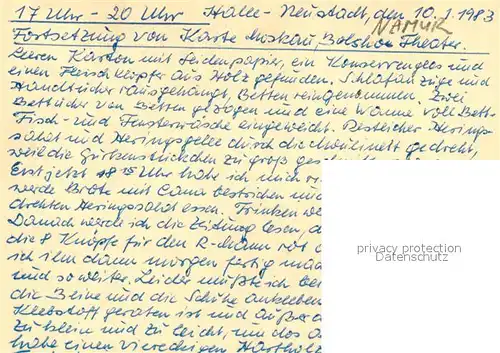 17 Uhr - 20 Uhr Halle-Neustadt, den 10.1.1983
NAMUR
Fortsetzung von Karte Moskau, Bolshoi Theater.
Leeren Karton mit Seidenpapier, ein Konservenglas und
einen Fleischklopfer aus Holz gefunden. Schlafanzüge und
Handtücher rausgehängt, Betten reingenommen. Zwei
Bettücher von Betten gezogen und eine Wanne voll Bett-
Tisch- und Fensterwäsche eingeweicht. Restlicher Herings-
salat und Heringsgelle durch die gedreht,
weil die Gurkenstückchen zu groß
Erst jetzt 18 15 Uhr habe ich mich
werde Brote mit Cama bestrichen und
drehten Heringssalat essen. Trinken
Danach werde ich die Zeitung lesen,
die 8 Knöpfe für den R-Mann rot
ich ihn dann morgen fertig
und so weiter. Leider mußte ich
die Beine und die Schuhe ankleben
Klebstoff geraten ist und außer
zu klein und zu leicht, und das
habe einen viereckigen Hartholz
privacy protection